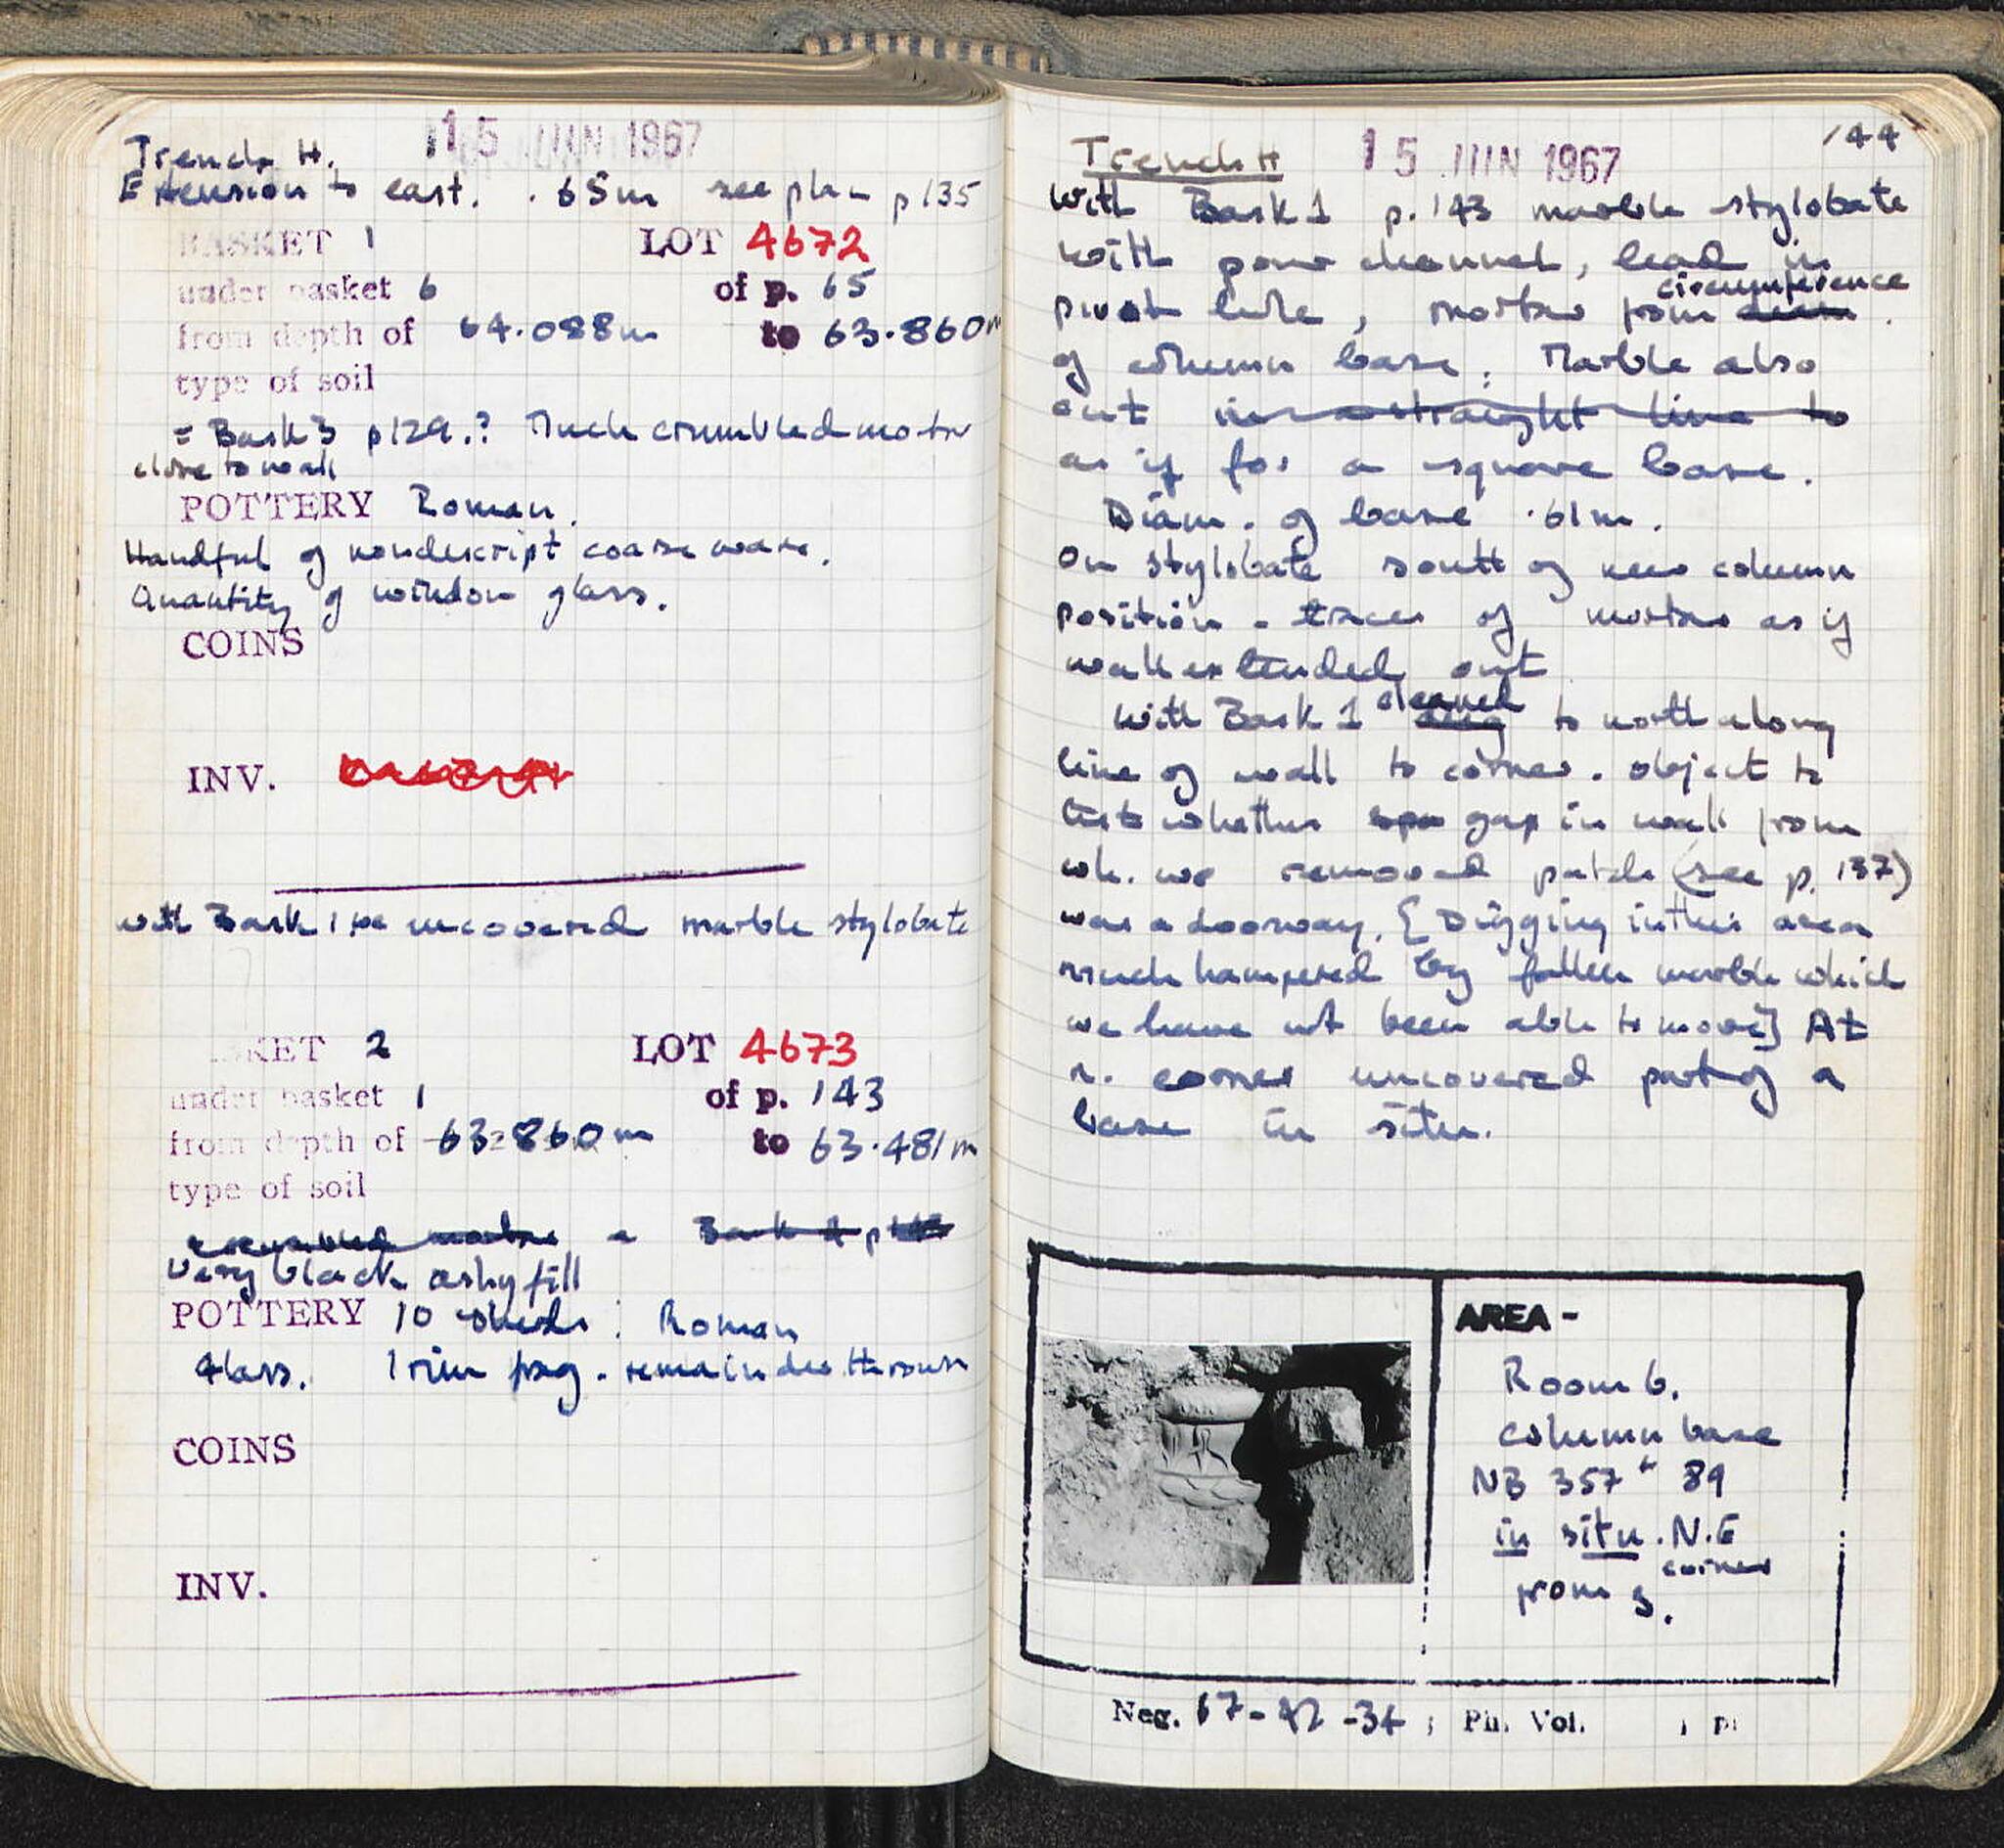 15 JUN 1967
Trench H.
Extension to east. .65m see plan p135
BASKET 1 LOT 4672
under basket 6 of p. 65
from depth of 64.088m to 63.860m
type of soil
= Bask 3 p129.? Much crumbled mortar
close to wall
POTTERY Roman.
Handful of nondescript coarse ware.
Quantity of window glass.
COINS
INV.
with Bask 1 we uncovered marble stylobate
BASKET 2 LOT 4673
under basket 1 of p. 143
from depth of 63.860m to 63.481m
type of soil
crumbled mortar = Bask p
very black ashy fill
POTTERY 10 sherds: Roman
Glass. 1 rim frag. remainder thrown
COINS
INV.
144
Trench H 15 JUN 1967
With Bask 1 p. 143 marble stylobate
with pour channel, lead in
circumference
pivot hole, mortar from diam.
of column base. Marble also
cut in a straight line to
as if for a square base.
Diam. of base .61m.
On stylobate south of new column
position - traces of mortar as if
wall extended out
cleaned
With Bask 1 dug to north along
line of wall to corner. object to
test whether gap in wall from
wh. we removed patch (see p. 137)
was a doorway. [Digging in this area
much hampered by fallen marble which
we have not been able to move] At
n. corner uncovered part of a
base in situ.
AREA -
Room 6.
column base
NB 357 " 89
in situ. N.E
corner
from S.
Neg. 67-42-34; Ph. Vol. , p.